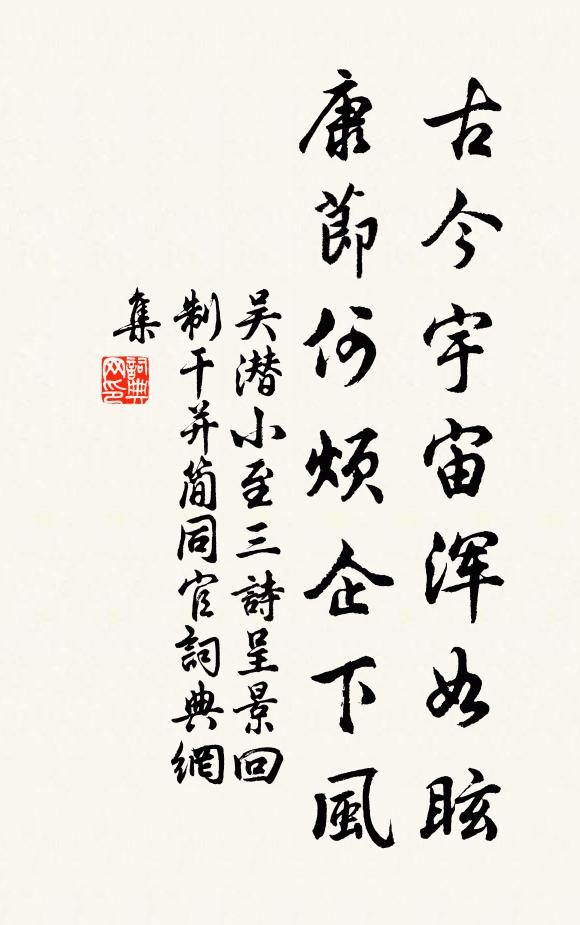 古今宇宙浑如眩
康節何煩企下風
吴潜小至三詩呈景回
制干并簡同官詞典網
集
詞典
网印